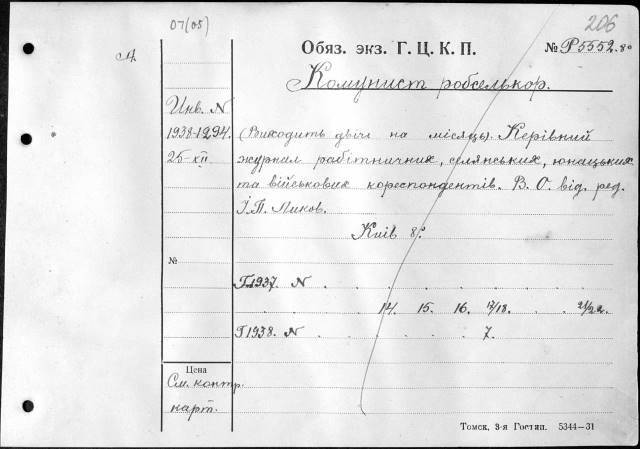 07(05)
206
Обяз. экз. Г. Ц. К. П.
№ Р5552.80
Комунист робселькор.
Инв. N
1938-1294.
25-XII
(Виходить двічі на місяць). Керівний
журнал работничих, селянських, юнацьких
та військових кореспондентів. В. О. від. ред.
І. П. Ликов.
Київ 8º.
№
Г.1937. N
14. 15. 16. 17/18. 21/22.
Г1938. N 7.
Цена
См. контр.
карт.
Томск, 3-я Гостип. 5344—31